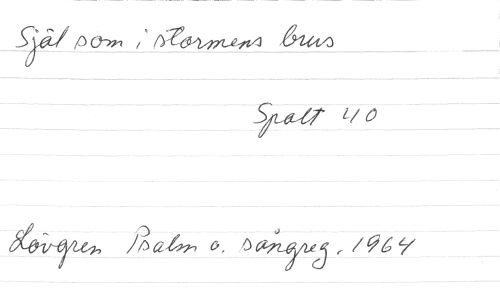 Själ som i stormens brus
Spalt 40
Lövgren Psalm o. sångreg. 1964